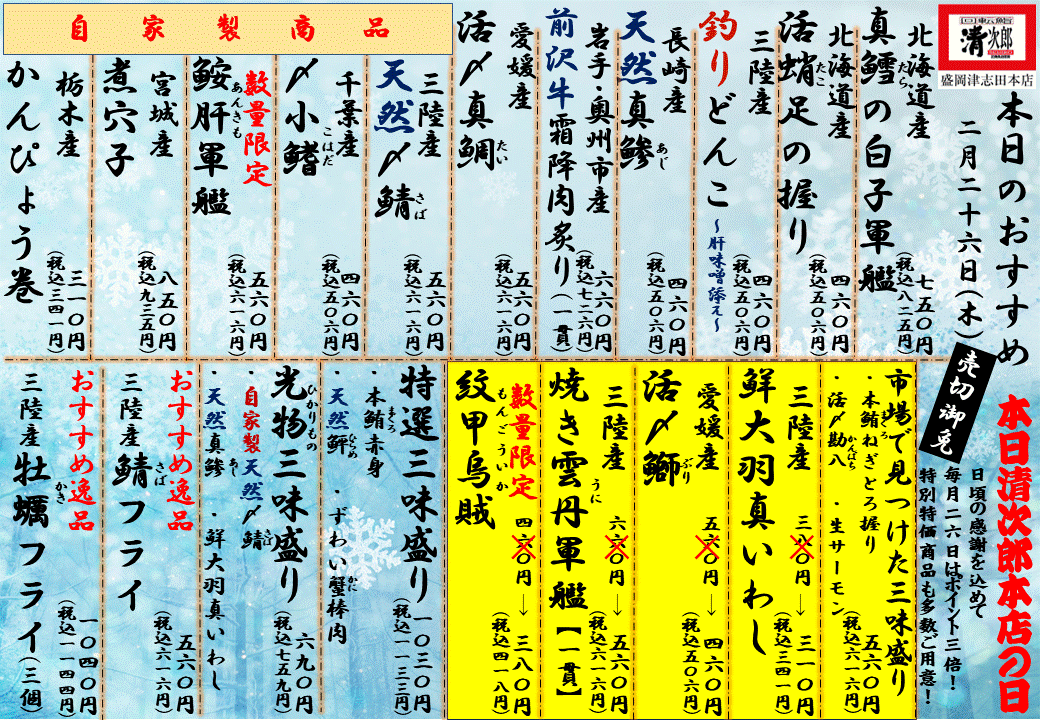 回転鮨
清次郎
盛岡津志田本店
本日のおすすめ
二月二十六日(木)
売切御免
北海道産
真鱈の白子軍艦
たら
七五〇円
(税込八二五円)
北海道産
活蛸足の握り
たこ
四六〇円
(税込五〇六円)
三陸産
釣りどんこ
~肝味噌添え~
四六〇円
(税込五〇六円)
長崎産
天然真鯵
あじ
四六〇円
(税込五〇六円)
岩手・奥州市産
前沢牛霜降肉炙り(一貫)
六六〇円
(税込七二六円)
愛媛産
活〆真鯛
たい
五六〇円
(税込六一六円)
自家製商品
三陸産
天然〆鯖
さば
五六〇円
(税込六一六円)
千葉産
〆小鰭
こはだ
四六〇円
(税込五〇六円)
数量限定
鮟肝軍艦
あんきも
五六〇円
(税込六一六円)
宮城産
煮穴子
八五〇円
(税込九三五円)
栃木産
かんぴょう巻
三一〇円
(税込三四一円)
本日清次郎本店の日
日頃の感謝を込めて
毎月二六日はポイント三倍!
特別特価商品も多数ご用意!
市場で見つけた三味盛り
・本鮪ねぎとろ握り
まぐろ
・活〆勘八
かんぱち
・生サーモン
五六〇円
(税込六一六円)
三陸産
鮮大羽真いわし
三八〇円→三一〇円
(税込三四一円)
愛媛産
活〆鰤
ぶり
五六〇円→四六〇円
(税込五〇六円)
三陸産
焼き雲丹軍艦【一貫】
うに
六六〇円→五六〇円
(税込六一六円)
数量限定
紋甲烏賊
もんごういか
四六〇円→三八〇円
(税込四一八円)
特選三味盛り
・本鮪赤身
まぐろ
・天然鮃
ひらめ
・ずわい蟹棒肉
かに
一〇三〇円
(税込一一三三円)
光物三味盛り
ひかりもの
・自家製天然〆鯖
さば
・天然真鯵
あじ
・鮮大羽真いわし
六九〇円
(税込七五九円)
おすすめ逸品
三陸産鯖フライ
さば
五六〇円
(税込六一六円)
おすすめ逸品
三陸産牡蠣フライ(三個
かき
一〇四〇円
(税込一一四四円)